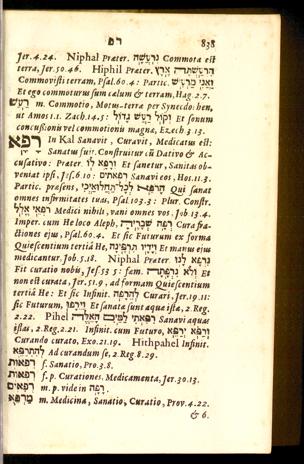 רפ 838
Jer. 4. 24. Niphal Præter. נרעשה Commota est
terra, Jer. 50. 46. Hiphil Præter. הרעשתה ארץ
Commovisti terram, Psal. 60. 4: Partic.
Et ego commoturus sum cælum & terram, Hag. 2. 7.
רעש m. Commotio, Motus-terræ per Synecdo: hen,
ut Amos 1. 1. Zach. 14. 5: וקול רעש גדול Et sonum
concussionis vel commotionis magnæ, Ezech. 3. 13.
רפא In Kal Sanavit, Curavit, Medicatus est:
Sanatus fuit. Construitur cū Dativo & Ac-
cusativo: Præter. ורפא לו Et sanetur, Sanitas ob-
veniat ipsi, Jes. 6. 10: רפאתים Sanavi eos, Hos. 11. 3.
Partic. præsens, הרפא לכל־תחלואיכי Qui sanat
omnes infirmitates tuas, Psal. 103. 3: Plur. Constr.
רפאי אלל Medici nihili, vani omnes vos, Job. 13. 4.
Imper. cum He loco Aleph, רפה שבריה Cura fra-
ctiones ejus, Psal. 60. 4. Et sic Futurum ex forma
Quiescentium tertiâ He, וידיו תרפינה Et manus ejus
medicantur, Job. 5. 18. Niphal Præter. נרפא לנו
Fit curatio nobis, Jes. 53. 5: fœm. ולא נרפתה Et
non est curata, Jer. 51. 9, ad formam Quiescentium
tertiâ He: Et sic Infinit. להרפה Curari, Jer. 19. 11:
sic Futurum, וירפו Et sanatæ sunt aquæ istæ, 2. Reg.
2. 22. Pihel רפאתי למים האלה Sanavi aquas
istas, 2. Reg. 2. 21. Infinit. cum Futuro, ורפא ירפא
Curando curato, Exo. 21. 19. Hithpahel Infinit.
להתרפא Ad curandum se, 2. Reg. 8. 29.
רפאות f. Sanatio, Pro. 3. 8.
רפאות f. p. Curationes, Medicamenta, Jer. 30. 13.
רפאים m. p. vide in רפה.
מרפא m. Medicina, Sanatio, Curatio, Prov. 4. 22.
& 6.